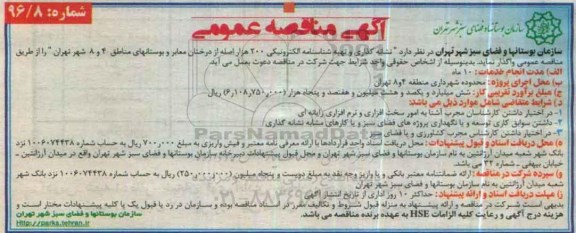 شماره: ۹۶/۸
آگهی مناقصه عمومی
سازمان بوستانها و فضای سبز شهر تهران
سازمان بوستانها و فضای سبز شهر تهران در نظر دارد " نشانه گذاری و تهیه شناسنامه الکترونیکی ۲۰۰ هزار اصله از درختان معابر و بوستانهای مناطق ۴ و ۸ شهر تهران " را از طریق
مناقصه عمومی واگذار نماید. بدینوسیله از اشخاص حقوقی واجد شرایط جهت شرکت در مناقصه دعوت بعمل می آید.
الف) مدت انجام خدمات: ۱۰ ماه
ب) محل اجرای پروژه: محدوده شهرداری منطقه ۴و۸ تهران
ج) مبلغ برآورد تقریبی کار: شش میلیارد و یکصد و هشت میلیون و هفتصد و پنجاه هزار (۶,۱۰۸,۷۵۰,۰۰۰) ریال
د) شرایط متقاضی شامل موارد ذیل می باشد:
۱- در اختیار داشتن کارشناسان مجرب آشنا به امور سخت افزاری و نرم افزاری رایانه ای
۲- داشتن سوابق کاری توسعه و یا نگهداری پروژه های فضای سبز و یا کارهای مشابه نشانه گذاری
۳- در اختیار داشتن کارشناس مجرب کشاورزی و یا فضای سبز
ه) محل دریافت اسناد و قبول پیشنهادات: محل دریافت اسناد واحد قراردادها با ارائه معرفی نامه معتبر و فیش واریزی به مبلغ ۷۰۰,۰۰۰ ریال به حساب شماره ۱۰۰۶۰۷۴۴۳۸ نزد
بانک شهر شعبه میدان آرژانتین به نام سازمان بوستانها و فضای سبز شهر تهران و محل قبول پیشنهادات دبیرخانه سازمان بوستانها و فضای سبز شهر تهران واقع در میدان آرژانتین -
خیابان بیهقی می باشد.
و) سپرده شرکت در مناقصه: ارائه ضمانتنامه معتبر بانکی و یا واریز وجه نقد به مبلغ دویست و پنجاه میلیون (۲۵۰,۰۰۰,۰۰۰) ریال به حساب شماره ۱۰۰۶۰۷۴۴۳۸ نزد بانک شهر
شعبه میدان آرژانتین به نام سازمان بوستانها و فضای سبز شهر تهران
ز) مهلت دریافت اسناد و ارائه پیشنهاد: حداکثر ۱۰ روز اداری از تاریخ انتشار آگهی
بدیهی است شرکت در مناقصه و ارائه پیشنهاد به منزله قبول شروط و تکالیف مقرر در اسناد مناقصه بوده و سازمان در رد یا قبول یک یا کلیه پیشنهادات مختار است و
هزینه درج آگهی و رعایت کلیه الزامات HSE به عهده برنده مناقصه می باشد.
سازمان بوستانها و فضای سبز شهر تهران
http://parks.tehran.ir
ParsNamadData